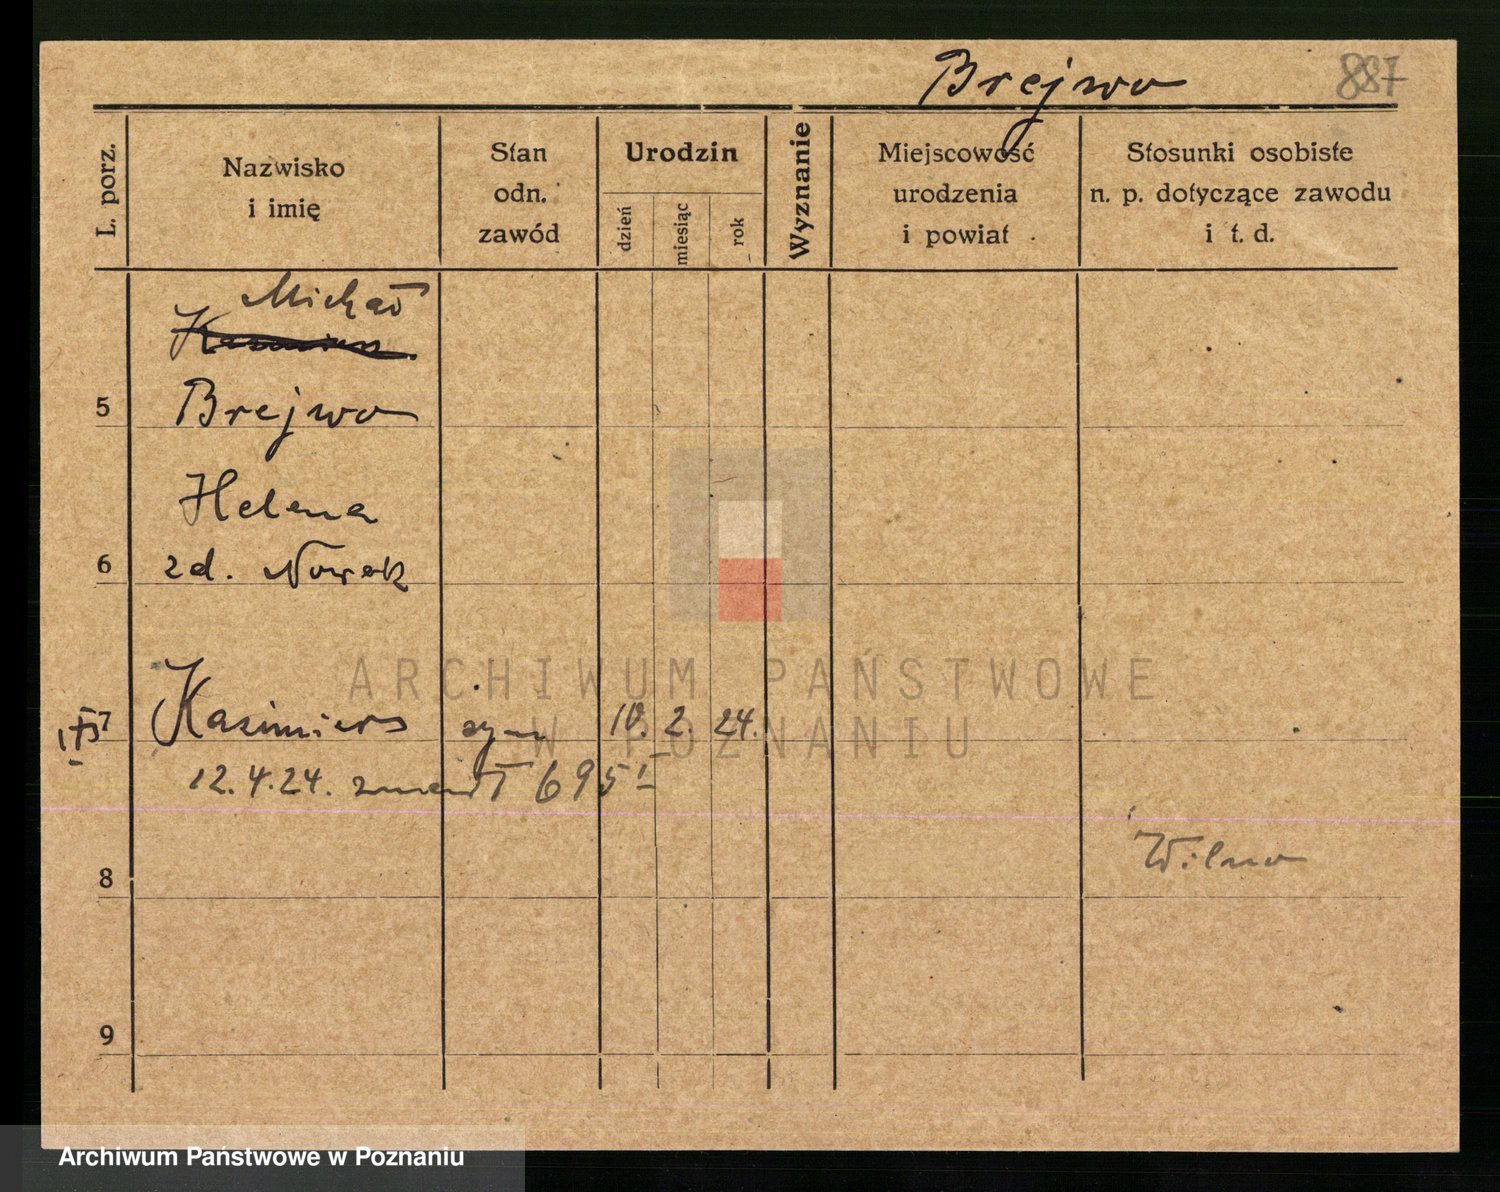 Brejwo 887
L. porz.
Nazwisko
i imię
Stan
odn.
zawód
Urodzin
dzień
miesiąc
rok
Wyznanie
Miejscowość
urodzenia
i powiat
Stosunki osobiste
n. p. dotyczące zawodu
i t. d.
Michał
5 Brejwo
Helena
6 zd. Nowak
7 Kazimierz syn 10. 2. 24.
12.4.24. zmarł 695
Wilno
8
9
ARCHIWUM PAŃSTWOWE
W POZNANIU
Archiwum Państwowe w Poznaniu